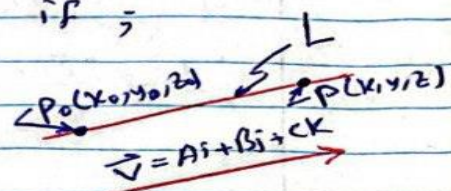 if ;
L
P₀(x₀,y₀,z₀)
P(x,y,z)
v⃗ = Ai+Bj+CK